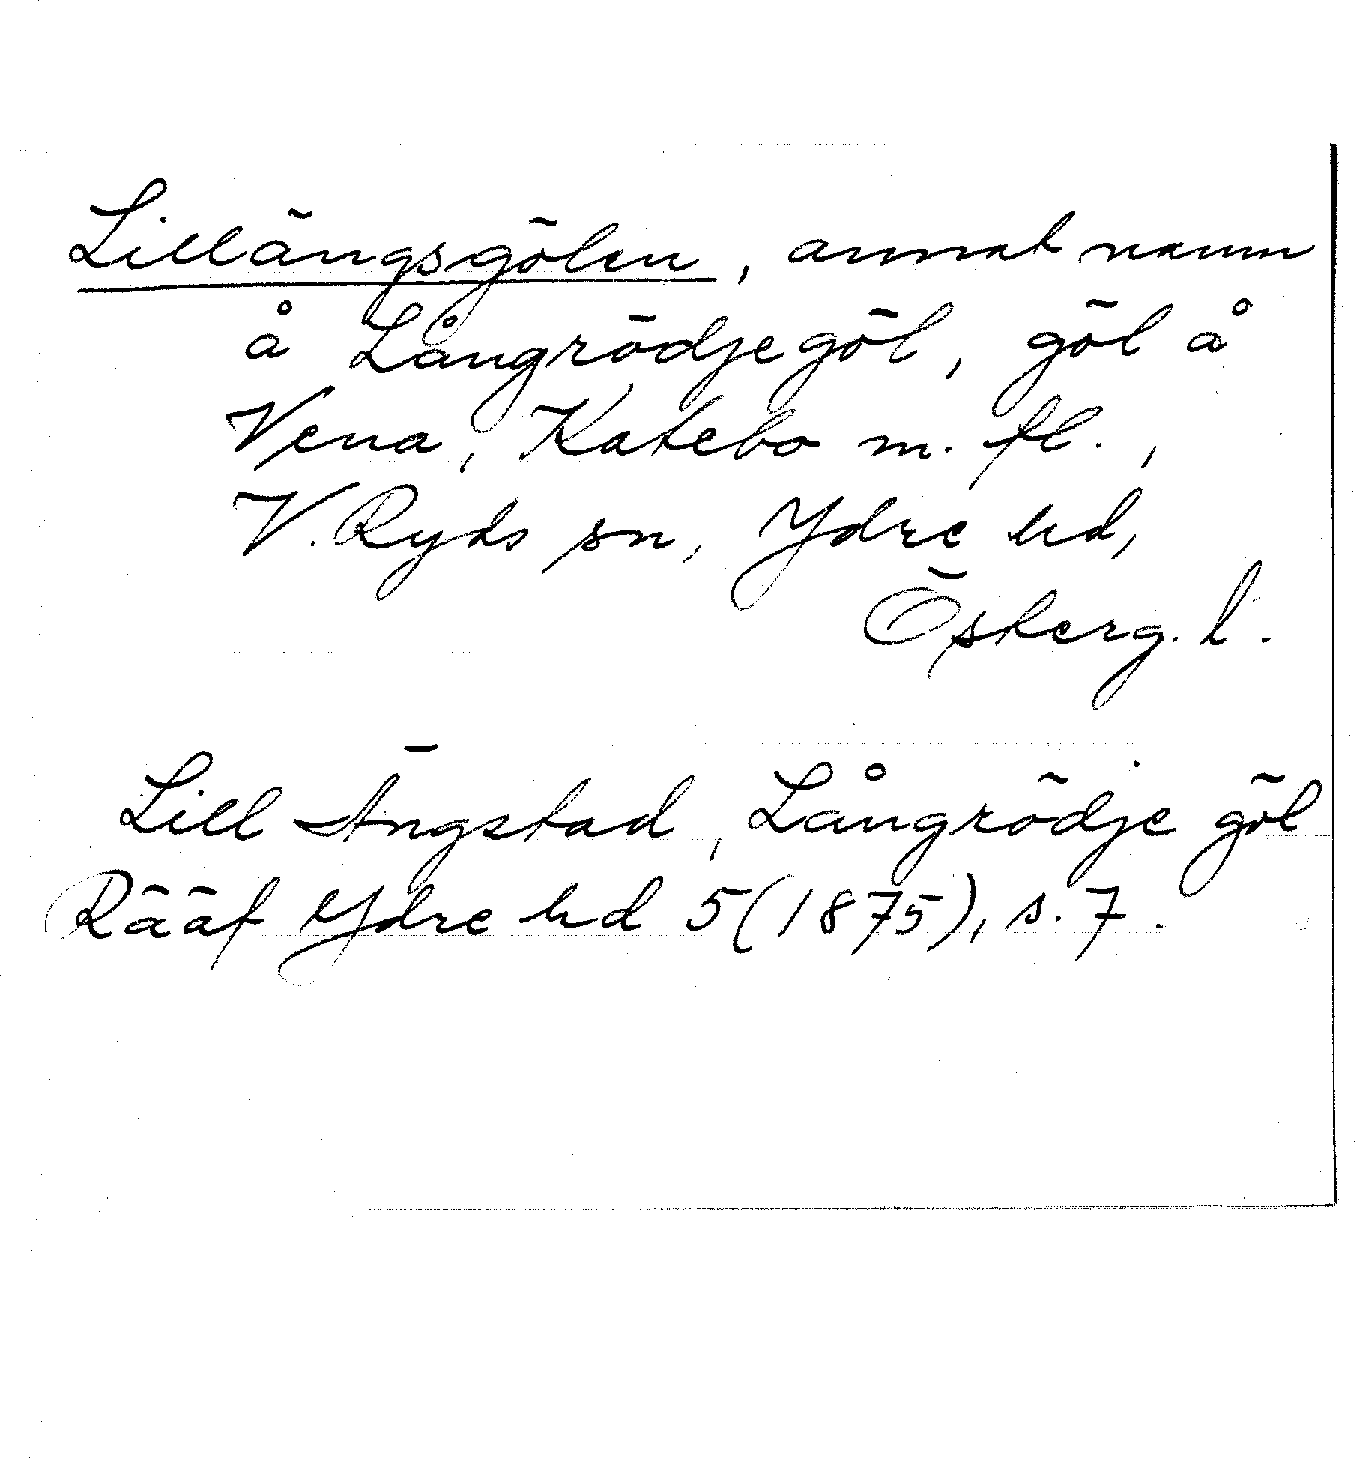 Lillängsgölen, annat namn
å Långrödjegöl, göl å
Vena, Katebo m. fl.,
V. Ryds sn, Ydre hd,
Österg. l.
Lill Ängstad, Långrödje göl
Rääf Ydre hd 5(1875), s. 7.